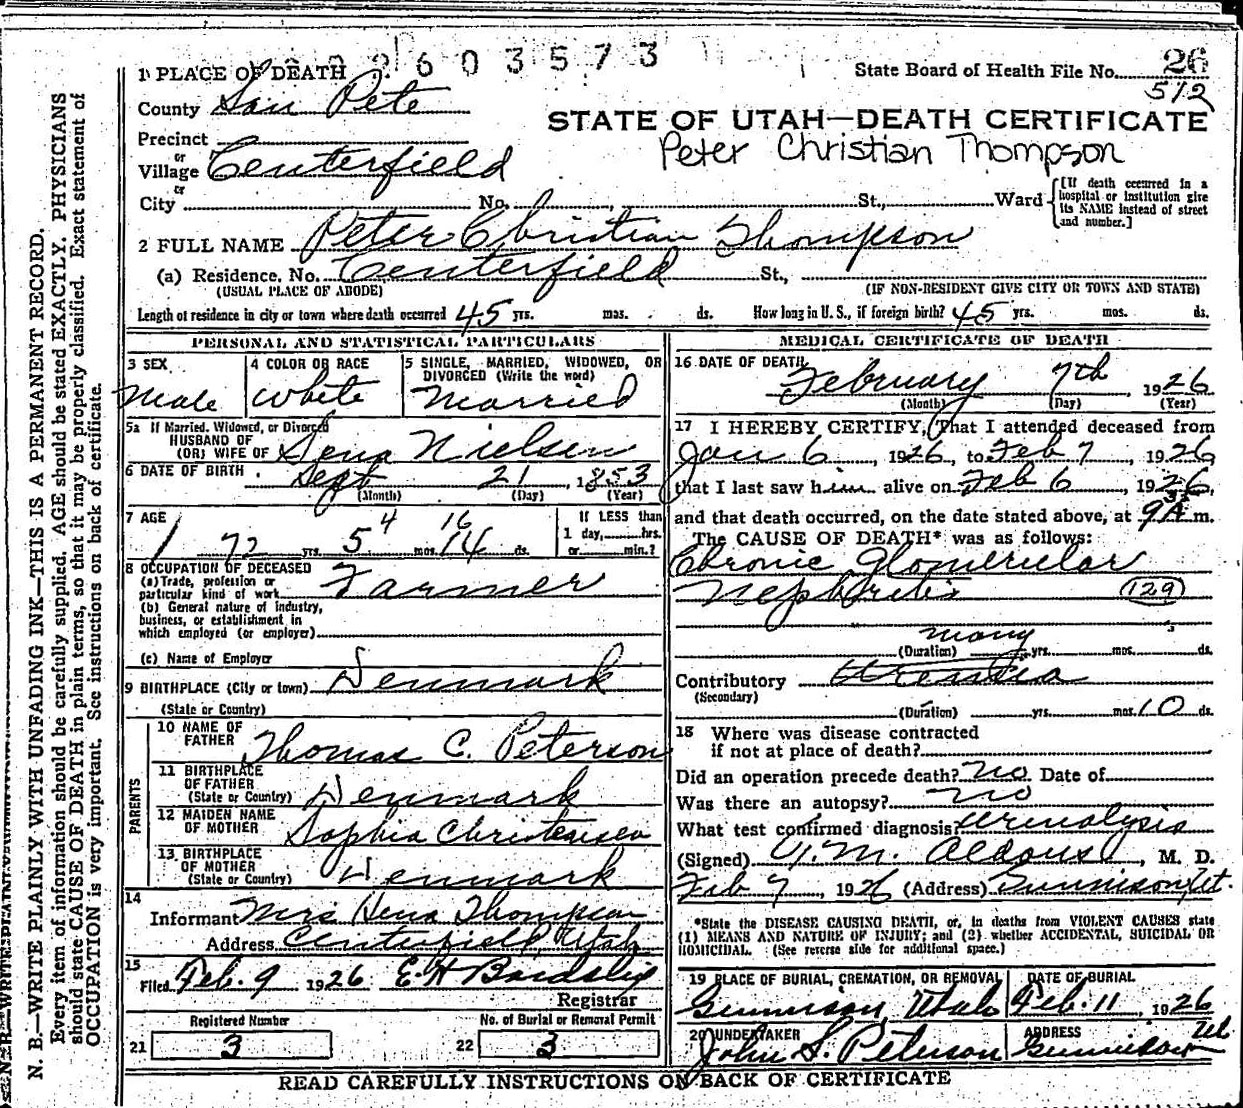 2603573
1 PLACE OF DEATH
State Board of Health File No. 26
512
County San Pete
STATE OF UTAH—DEATH CERTIFICATE
Precinct
Peter Christian Thompson
or
Village Centerfield
or
City No. St., Ward
[If death occurred in a hospital or institution give its NAME instead of street and number.]
2 FULL NAME Peter Christian Thompson
(a) Residence, No. Centerfield St.,
(USUAL PLACE OF ABODE) (IF NON-RESIDENT GIVE CITY OR TOWN AND STATE)
Length of residence in city or town where death occurred 45 yrs. mos. ds. How long in U. S., if foreign birth? 45 yrs. mos. ds.
PERSONAL AND STATISTICAL PARTICULARS
3 SEX
Male
4 COLOR OR RACE
White
5 SINGLE, MARRIED, WIDOWED, OR
DIVORCED (Write the word)
Married
5a If Married, Widowed, or Divorced
HUSBAND OF
(OR) WIFE OF Sena Nielsen
6 DATE OF BIRTH Sept 21, 1853
(Month) (Day) (Year)
7 AGE
72 yrs. 5 4 mos. 16 14 ds.
If LESS than
1 day, hrs.
or min.?
8 OCCUPATION OF DECEASED
(a) Trade, profession or
particular kind of work Farmer
(b) General nature of industry,
business, or establishment in
which employed (or employer)
(c) Name of Employer
9 BIRTHPLACE (City or town) Denmark
(State or Country)
PARENTS
10 NAME OF
FATHER Thomas C. Peterson
11 BIRTHPLACE
OF FATHER
(State or Country) Denmark
12 MAIDEN NAME
OF MOTHER Sophia Christensen
13 BIRTHPLACE
OF MOTHER
(State or Country) Denmark
14
Informant Mrs Sena Thompson
Address Centerfield Utah
15
Filed Feb. 9 1926 E. H.
Registrar
Registered Number
21 3
No. of Burial or Removal Permit
22 3
MEDICAL CERTIFICATE OF DEATH
16 DATE OF DEATH
February 7th, 1926
(Month) (Day) (Year)
17 I HEREBY CERTIFY, That I attended deceased from
Jan 6, 1926, to Feb 7, 1926
that I last saw him alive on Feb 6, 1926,
and that death occurred, on the date stated above, at 9 A m.
The CAUSE OF DEATH* was as follows:
Chronic Glomerular
Nephritis (129)
many
(Duration) yrs. mos. ds.
Contributory Uremia
(Secondary)
(Duration) yrs. mos. 10 ds.
18 Where was disease contracted
if not at place of death?
Did an operation precede death? No Date of
Was there an autopsy? No
What test confirmed diagnosis? Urinalysis
(Signed) M. Aldous, M. D.
Feb 7, 1926 (Address) Gunnison, Ut.
*State the DISEASE CAUSING DEATH, or, in deaths from VIOLENT CAUSES state
(1) MEANS AND NATURE OF INJURY; and (2) whether ACCIDENTAL, SUICIDAL OR
HOMICIDAL. (See reverse side for additional space.)
19 PLACE OF BURIAL, CREMATION, OR REMOVAL
Gunnison, Utah
DATE OF BURIAL
Feb. 11, 1926
20 UNDERTAKER
John S. Peterson
ADDRESS
Gunnison Ut
READ CAREFULLY INSTRUCTIONS ON BACK OF CERTIFICATE
N. B.—WRITE PLAINLY WITH UNFADING INK—THIS IS A PERMANENT RECORD.
Every item of information should be carefully supplied. AGE should be stated EXACTLY. PHYSICIANS
should state CAUSE OF DEATH in plain terms, so that it may be properly classified. Exact statement of
OCCUPATION is very important. See instructions on back of certificate.